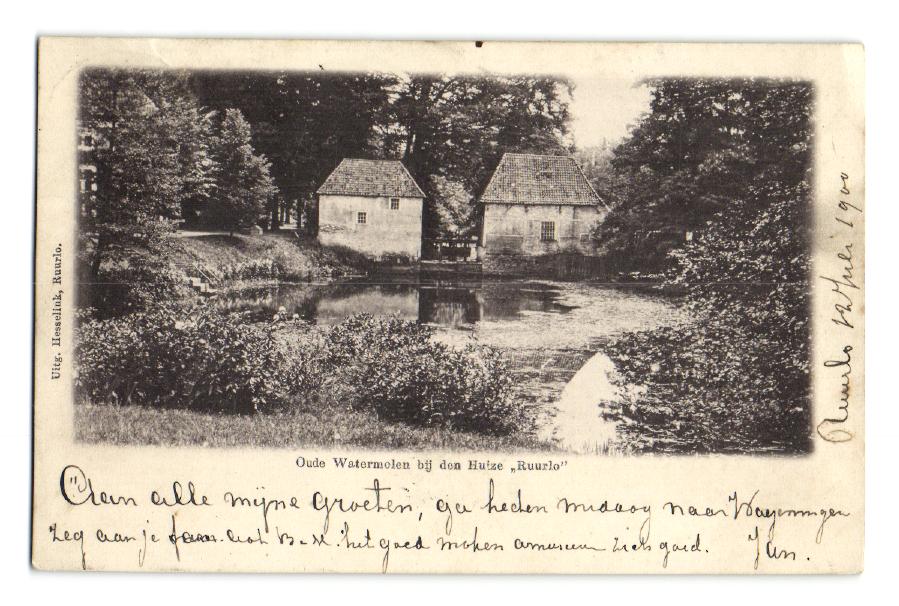 Uitg. Hesselink, Ruurlo.
Ruurlo 12 Juli 1900
Oude Watermolen bij den Huize „Ruurlo”
Aan alle mijne groeten, ga heden middag naar Wageningen
zeg aan je dat B. en M. 't goed maken amuseeren zich goed. Jan.